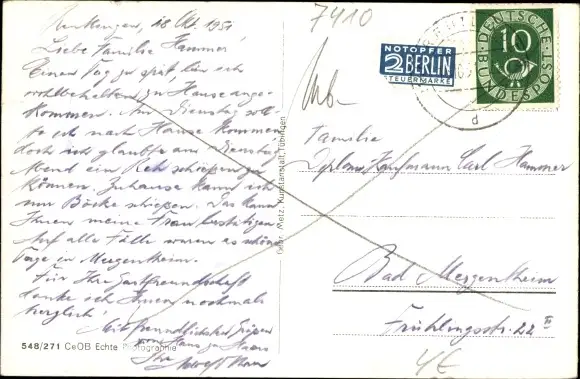 18. Okt. 1951
Liebe Familie Hammer!
Einen Tag zu spät bin ich
wohlbehalten zu Hause ange-
kommen. Am Dienstag soll-
te ich nach Hause kommen,
doch ich glaubte am Dienstag
Abend ein Reh schießen zu
können. Zuhause kann ich
nur Böcke schießen. Das kann
Ihnen meine Frau bestätigen.
Auf alle Fälle waren es schöne
Tage in Mergentheim.
Für Ihre Gastfreundschaft
danke ich Ihnen nochmals
herzlich!
Mit freundlichsten Grüßen
von Haus zu Haus
Ihr
548/271 CeOB Echte Photographie
Gebr. Metz, Kunstanstalt, Tübingen
7410
NOTOPFER
2 BERLIN
STEUERMARKE
DEUTSCHE
10
BUNDESPOST
d
Familie
Diplom Kaufmann Carl Hammer
Bad Mergentheim
Frühlingsstr. 22 II